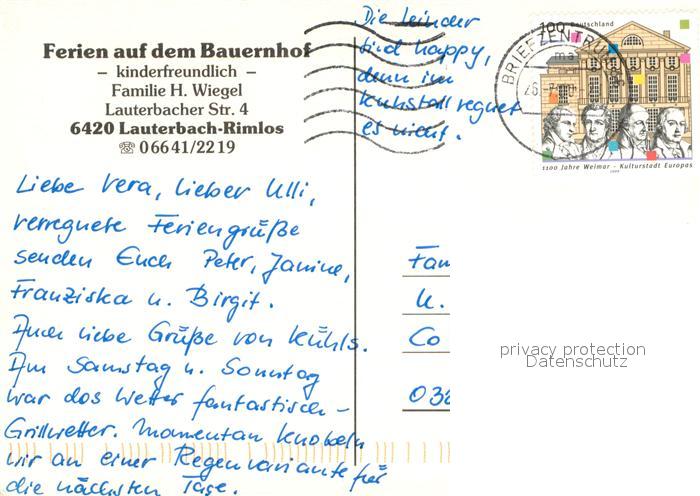 Ferien auf dem Bauernhof
– kinderfreundlich –
Familie H. Wiegel
Lauterbacher Str. 4
6420 Lauterbach-Rimlos
☏ 0 66 41/22 19
Liebe Vera, lieber Ulli,
verregnete Feriengrüße
senden Euch Peter, Janine,
Franziska u. Birgit.
Auch liebe Grüße von Kühls.
Am Samstag u. Sonntag
war das Wetter fantastisch –
Grillwetter. Momentan knobeln
wir an einer Regenvariante für
die nächsten Tage.
Die Kinder
sind happy,
denn im
Kuhstall regnet
es nicht.
100 Deutschland
BRIEFZENTRUM
1100 Jahre Weimar - Kulturstadt Europas
1999
Fam
U.
Co
038
privacy protection
Datenschutz